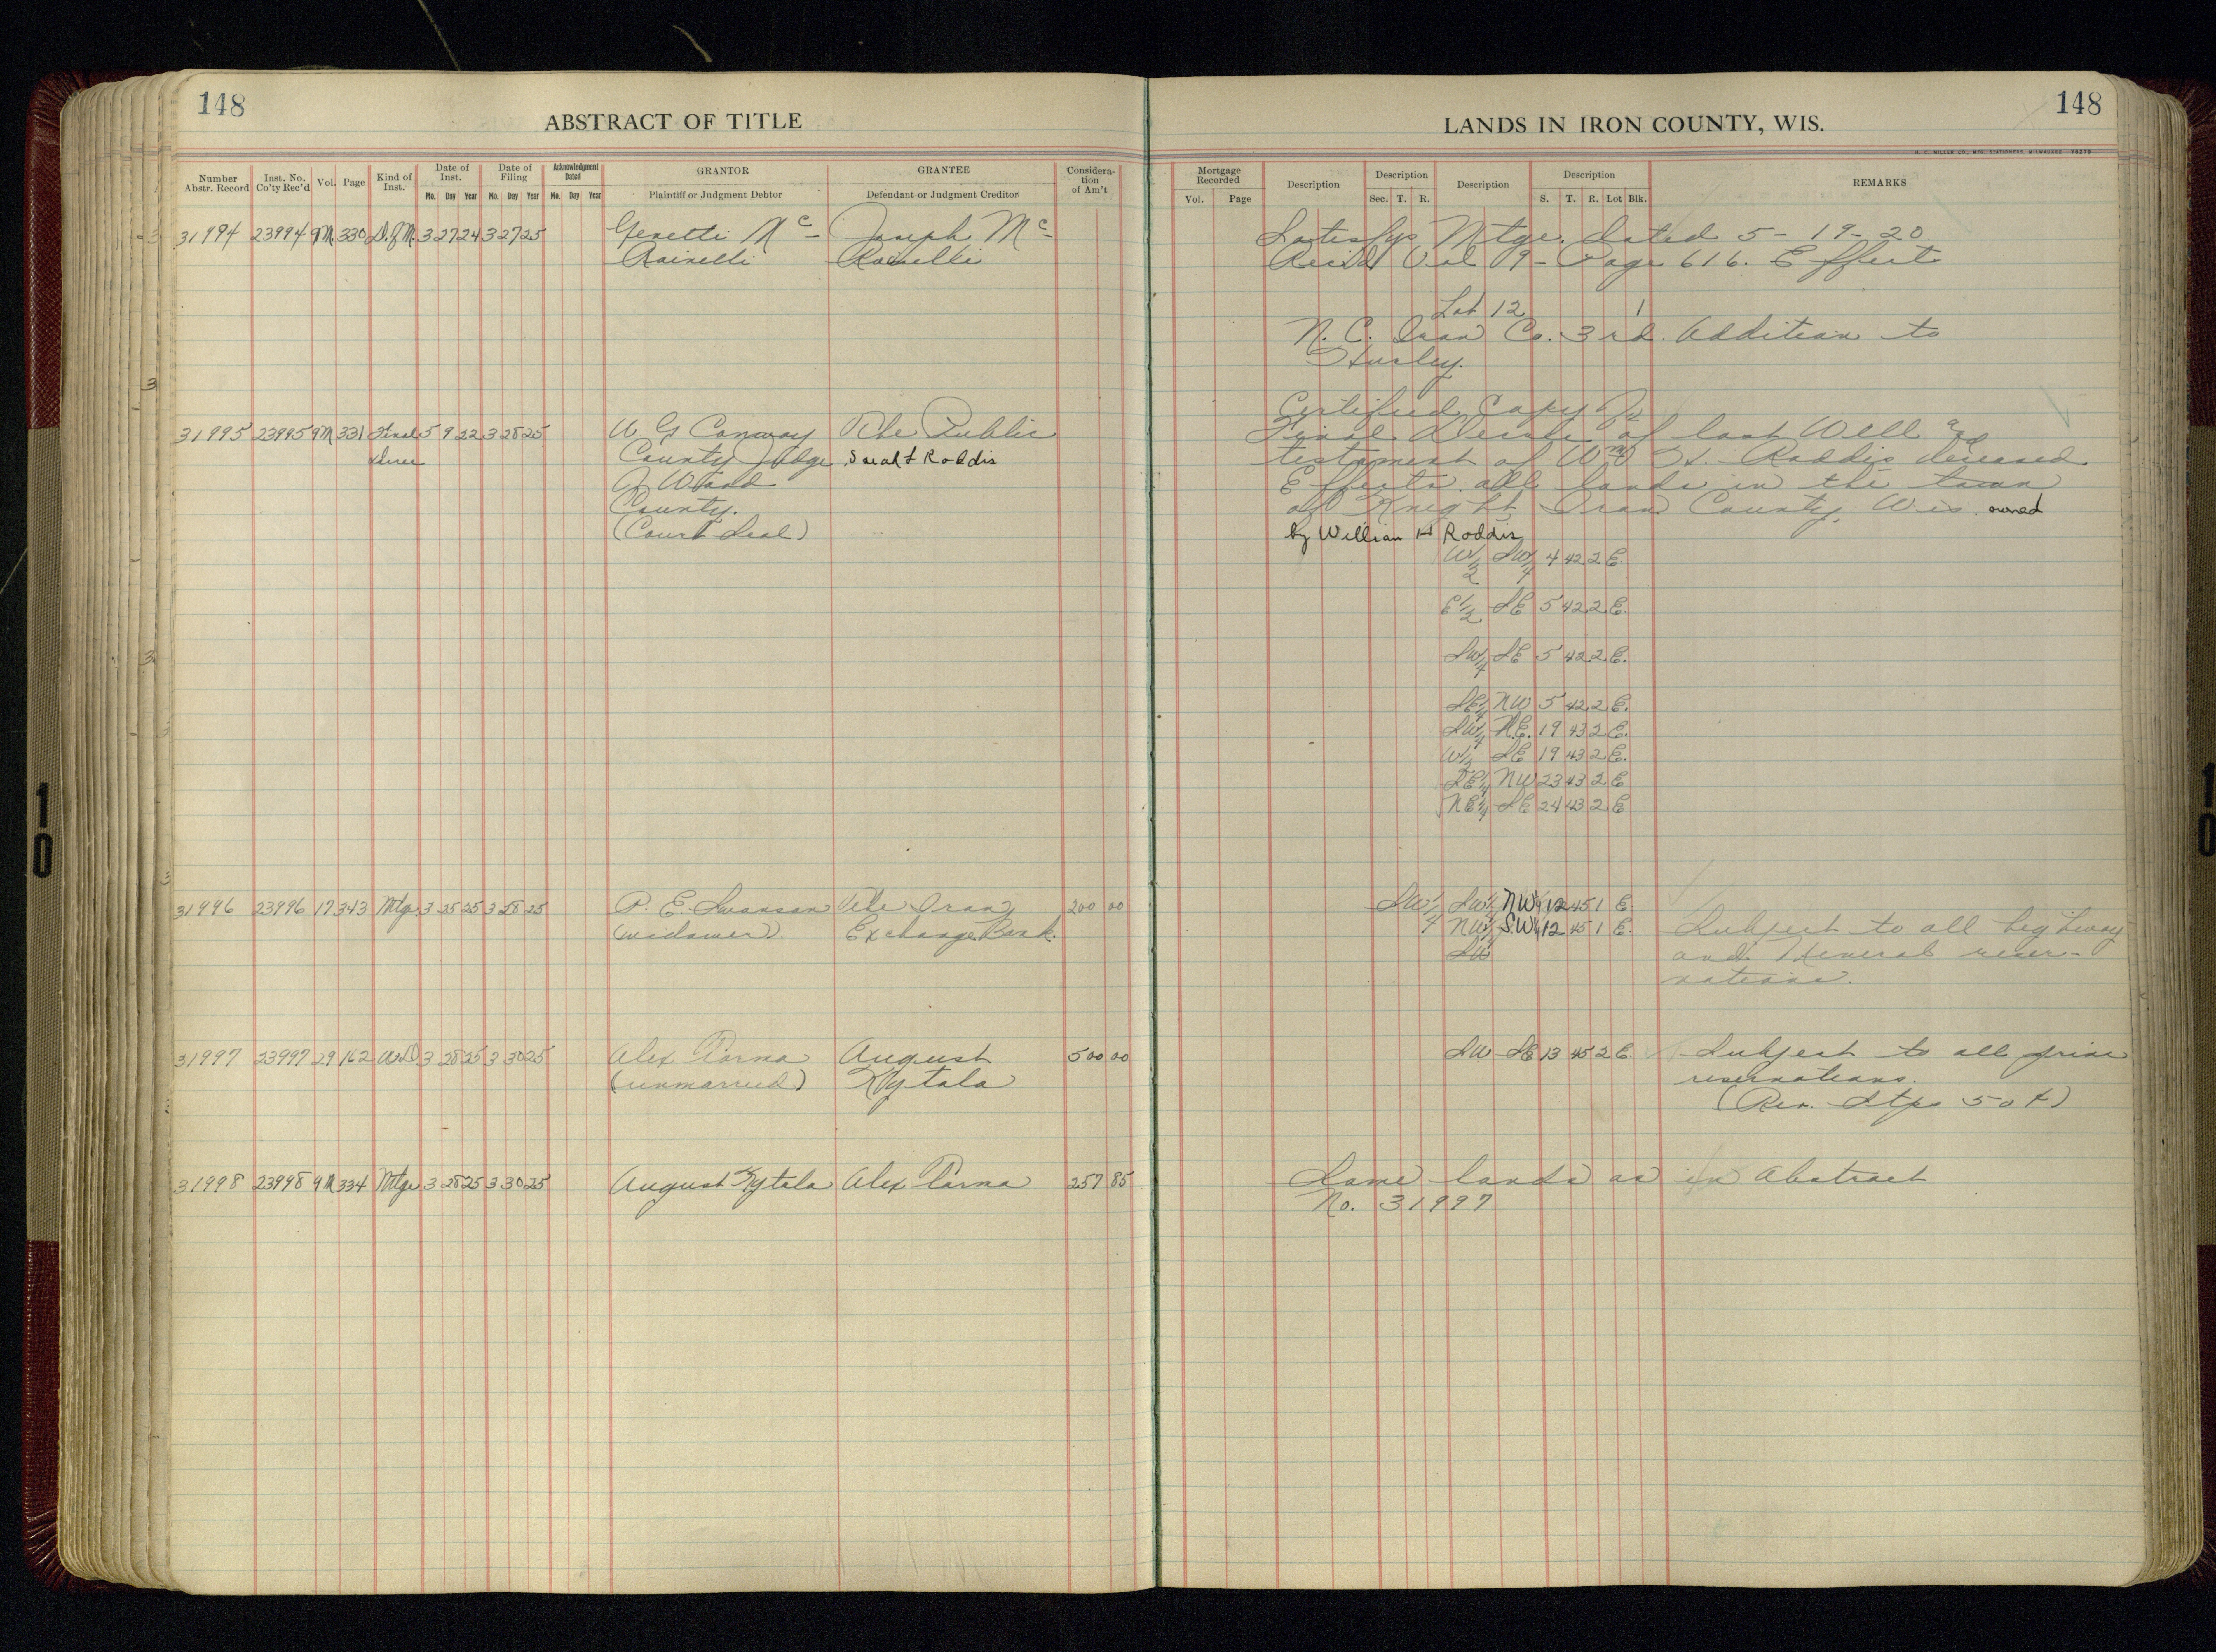 148
ABSTRACT OF TITLE
Number Abstr. Record | Inst. No. Co'ty Rec'd | Vol. | Page | Kind of Inst. | Date of Inst. Mo. Day Year | Date of Filing Mo. Day Year | Acknowledgment Dated Mo. Day Year | GRANTOR Plaintiff or Judgment Debtor | GRANTEE Defendant or Judgment Creditor | Consideration of Am't
31994 23994 9M 330 D.of M. 3 27 24 3 27 25 Mc- Joseph Mc-
Rainelli Rainelli
31995 23995 9M 331 Final 5 9 22 3 28 25 W. G Conway The Public
County Judge Sarah F Roddis
of Wood
County.
(Court Seal)
31996 23996 17 343 Mtge. 3 25 25 3 28 25 P. E. Swanson The Iron 200 00
(widower). Exchange Bank.
31997 23997 29 162 W.D 3 28 25 3 30 25 Alex Parma August 500 00
(unmarried) Kytala
31998 23998 9M 334 Mtge 3 28 25 3 30 25 August Kytala Alex Parma 257 85
148
LANDS IN IRON COUNTY, WIS.
H. C. MILLER CO., MFG. STATIONERS, MILWAUKEE
Mortgage Recorded Vol. Page | Description | Description Sec. T. R. | Description | Description S. T. R. Lot Blk. | REMARKS
Satisfys Mtge. dated 5-19-20
Rec'd Vol 9- Page 616. Effects
Lot 12 1
N. C. Iron Co. 3rd. Addition to
Hurley.
Certified Copy of
Final Decree of last Will and
testament of Wm H. Roddis deceased.
Effects all lands in the town
of Knight Iron County, Wis. owned
by William H Roddis
W1/2 SW1/4 4 42 2 E.
E1/2 SE 5 42 2 E.
SW1/4 SE 5 42 2 E.
SE1/4 NW 5 42 2 E.
SW1/4 N.E. 19 43 2 E.
W1/2 SE 19 43 2 E.
SE1/4 NW 23 43 2 E
NE1/4 SE 24 43 2 E
SW1/4 SW1/4 NW1/4 12 45 1 E.
NW1/4 S.W1/4 12 45 1 E. Subject to all highway
SW and Mineral reser-
vations.
SW SE 13 45 2 E. Subject to all prior
reservations.
(Rev. Stps 50¢)
Same lands as in Abstract
No. 31997